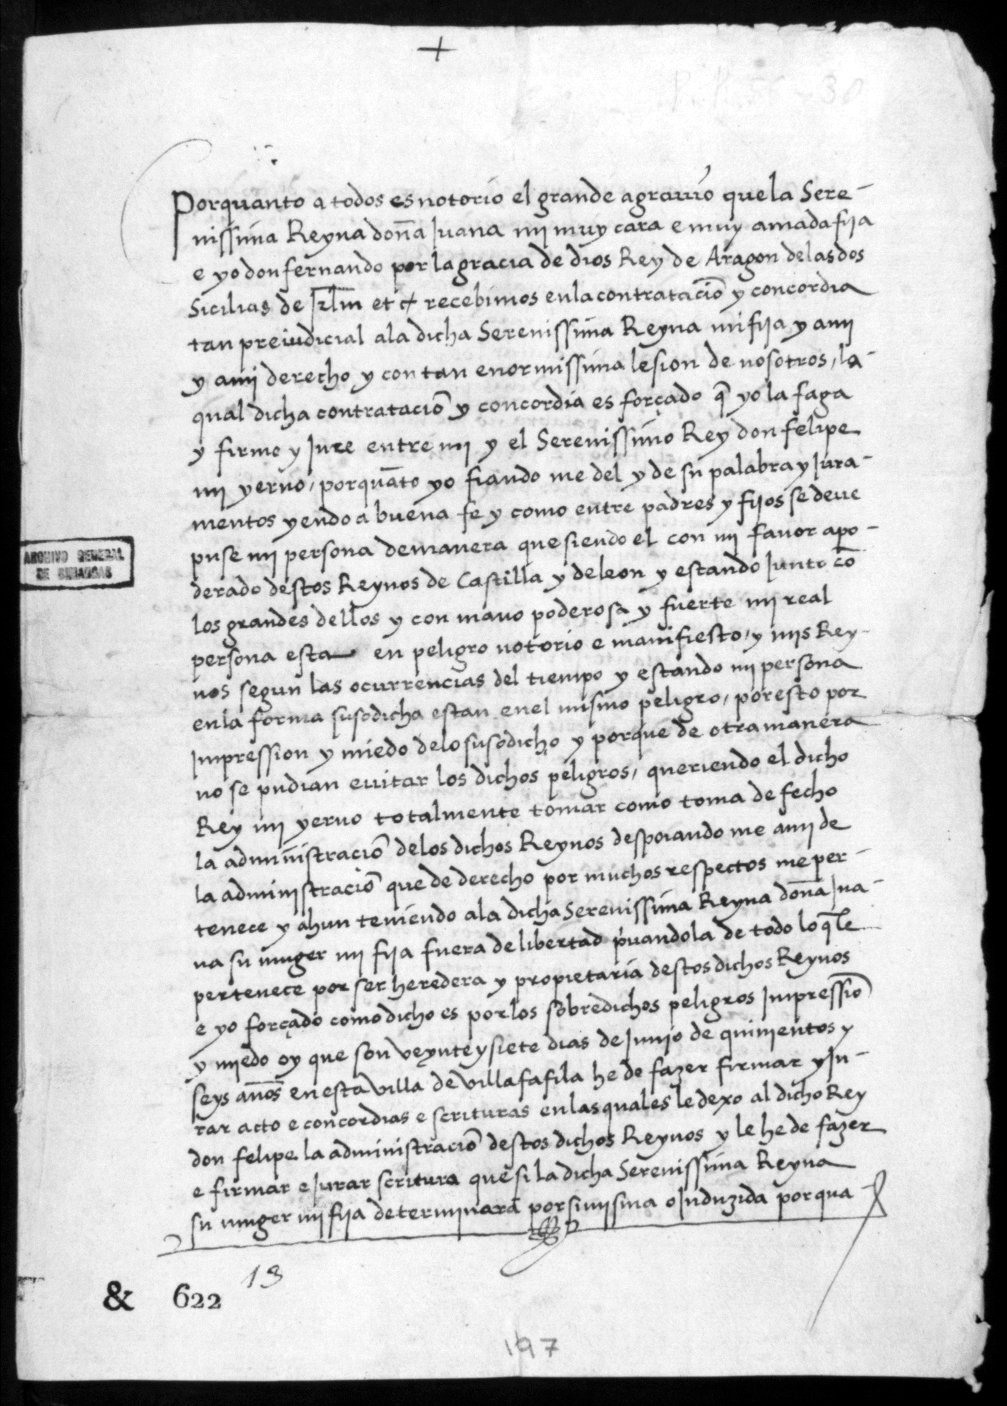 +
P.R. 56-38
Porquanto a todos es notorio el grande agravio que la Sere-
nissima Reyna doña Juana mi muy cara e muy amada fija
e yo don fernando por la gracia de dios Rey de Aragon de las dos
Sicilias de Jrlm etc recebimos en la contratacio͂ y concordia
tan preiudicial a la dicha Serenissima Reyna mi fija y a mi
y a mi derecho y con tan enormissima lesion de nosotros, la-
qual dicha contratacio͂ y concordia es forçado q͂ yo la faga
y firme y Jure entre mi y el Serenissimo Rey don felipe
mi yerno, porqua͂to yo fiando me del y de su palabra y Jura-
mentos yendo a buena fe y como entre padres y fijos se deve
puse mi persona de manera que siendo el con mi favor apo-
derado destos Reynos de Castilla y de leon y estando Junto co͂
los grandes dellos y con mano poderosa y fuerte mi real
persona esta en peligro notorio e manifiesto, y mis Rey-
nos segun las ocurrencias del tiempo y estando mi persona
en la forma susodicha estan en el mismo peligro, por esto por
Impression y miedo de lo susodicho y porque de otra manera
no se pudian evitar los dichos peligros, queriendo el dicho
Rey mi yerno totalmente tomar como toma de fecho
la administracio͂ de los dichos Reynos despoiando me a mi de
la administracio͂ que de derecho por muchos respectos me per-
tenece y ahun teniendo a la dicha Serenissima Reyna doña Jua-
na su muger mi fija fuera de libertad pͥvandola de todo lo q͂ le
pertenece por ser heredera y propietaria destos dichos Reynos
e yo forçado como dicho es por los sobredichos peligros Impressio͂
y miedo oy que son veynte y siete dias de Junio de quinientos y
seys años en esta villa de villafafila he de fazer firmar y Ju-
rar acto e concordias e scrituras en las quales le dexo al dicho Rey
don felipe la administracio͂ destos dichos Reynos y le he de fazer
e firmar e Jurar scritura que si la dicha Serenissima Reyna
su muger mi fija determinara por si misma o Induzida por qua
ARCHIVO GENERAL
DE SIMANCAS
& 622 13
197